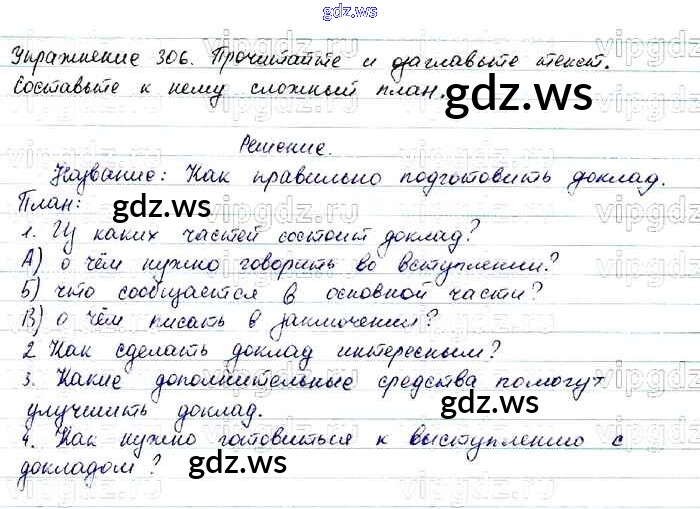 gdz.ws
Упражнение 306. Прочитайте и озаглавьте текст.
Составьте к нему сложный план.
gdz.ws
Решение.
Название: Как правильно подготовить доклад.
План:
gdz.ws
1. Из каких частей состоит доклад?
А) о чём нужно говорить во вступлении?
Б) что сообщается в основной части?
В) о чём писать в заключении?
2 Как сделать доклад интересным?
3. Какие дополнительные средства помогут
улучшить доклад.
gdz.ws
4. Как нужно готовиться к выступлению с
докладом?
gdz.ws
vipgdz.ru